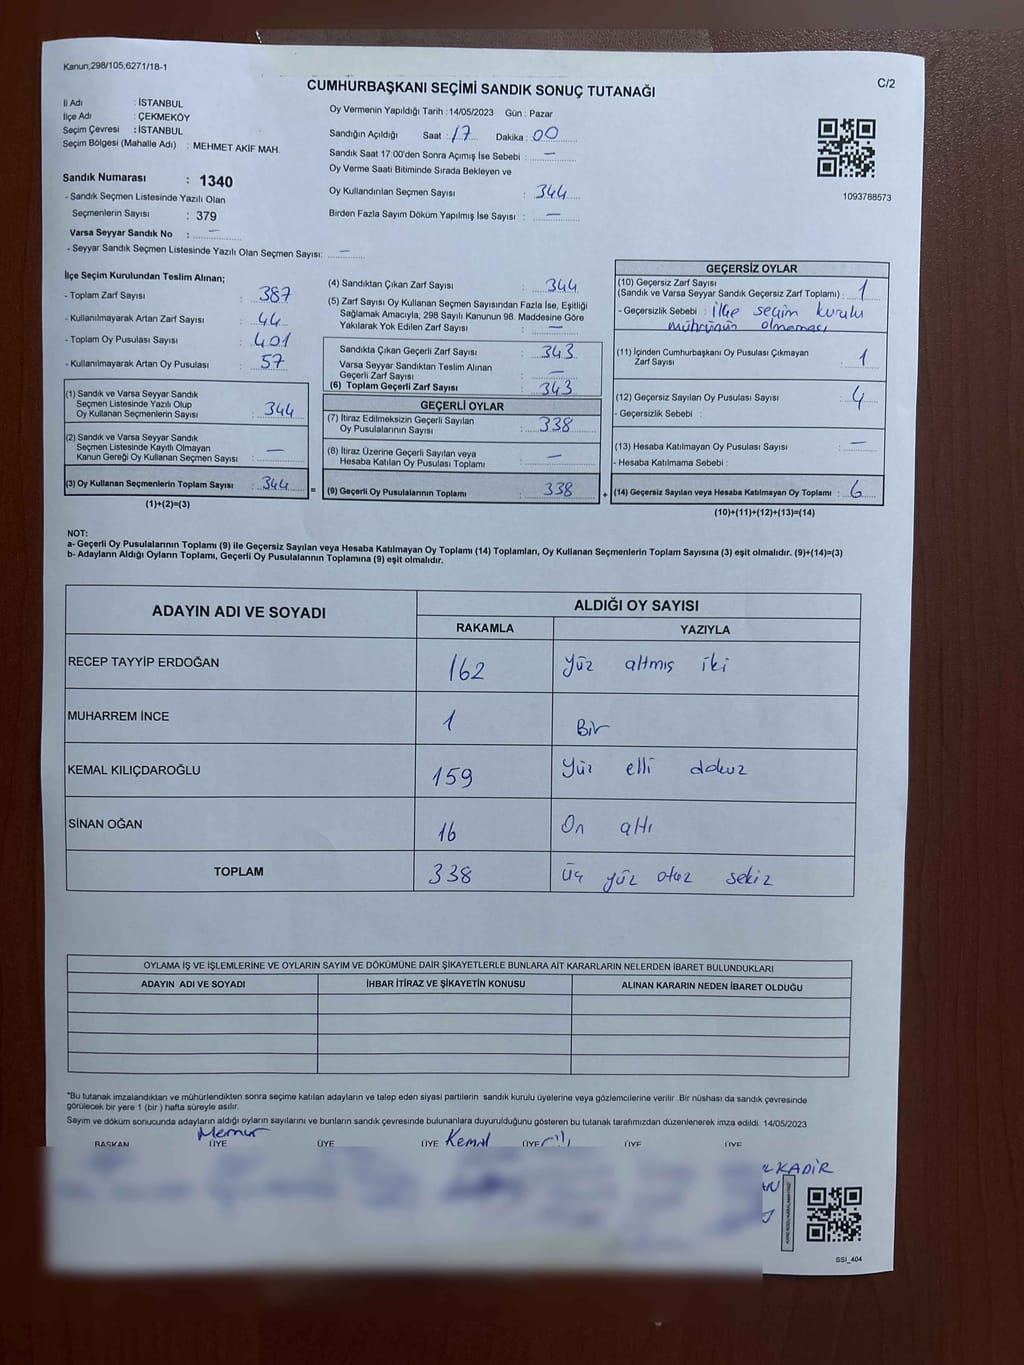 Kanun;298/105;6271/18-1
C/2
CUMHURBAŞKANI SEÇİMİ SANDIK SONUÇ TUTANAĞI
İl Adı : İSTANBUL
İlçe Adı : ÇEKMEKÖY
Seçim Çevresi : İSTANBUL
Seçim Bölgesi (Mahalle Adı) : MEHMET AKİF MAH.
Sandık Numarası : 1340
- Sandık Seçmen Listesinde Yazılı Olan
Seçmenlerin Sayısı : 379
Varsa Seyyar Sandık No : —
- Seyyar Sandık Seçmen Listesinde Yazılı Olan Seçmen Sayısı: —
Oy Vermenin Yapıldığı Tarih : 14/05/2023 Gün : Pazar
Sandığın Açıldığı Saat : 17 Dakika : 00
Sandık Saat 17:00'den Sonra Açımış İse Sebebi : —
Oy Verme Saati Bitiminde Sırada Bekleyen ve
Oy Kullandırılan Seçmen Sayısı : 344
Birden Fazla Sayım Döküm Yapılmış İse Sayısı : —
1093788573
İlçe Seçim Kurulundan Teslim Alınan;
- Toplam Zarf Sayısı : 387
- Kullanılmayarak Artan Zarf Sayısı : 44
- Toplam Oy Pusulası Sayısı : 401
- Kullanılmayarak Artan Oy Pusulası : 57
(1) Sandık ve Varsa Seyyar Sandık
Seçmen Listesinde Yazılı Olup
Oy Kullanan Seçmenlerin Sayısı : 344
(2) Sandık ve Varsa Seyyar Sandık
Seçmen Listesinde Kayıtlı Olmayan
Kanun Gereği Oy Kullanan Seçmen Sayısı : —
(3) Oy Kullanan Seçmenlerin Toplam Sayısı : 344
(1)+(2)=(3)
(4) Sandıktan Çıkan Zarf Sayısı : 344
(5) Zarf Sayısı Oy Kullanan Seçmen Sayısından Fazla İse, Eşitliği
Sağlamak Amacıyla, 298 Sayılı Kanunun 98. Maddesine Göre
Yakılarak Yok Edilen Zarf Sayısı : —
Sandıkta Çıkan Geçerli Zarf Sayısı : 343
Varsa Seyyar Sandıktan Teslim Alınan
Geçerli Zarf Sayısı : —
(6) Toplam Geçerli Zarf Sayısı : 343
GEÇERLİ OYLAR
(7) İtiraz Edilmeksizin Geçerli Sayılan
Oy Pusulalarının Sayısı : 338
(8) İtiraz Üzerine Geçerli Sayılan veya
Hesaba Katılan Oy Pusulası Toplamı : —
= (9) Geçerli Oy Pusulalarının Toplamı : 338
GEÇERSİZ OYLAR
(10) Geçersiz Zarf Sayısı
(Sandık ve Varsa Seyyar Sandık Geçersiz Zarf Toplamı) : 1
- Geçersizlik Sebebi : ilçe seçim kurulu
mührünün olmaması
(11) İçinden Cumhurbaşkanı Oy Pusulası Çıkmayan
Zarf Sayısı : 1
(12) Geçersiz Sayılan Oy Pusulası Sayısı : 4
- Geçersizlik Sebebi :
(13) Hesaba Katılmayan Oy Pusulası Sayısı : —
- Hesaba Katılmama Sebebi :
+ (14) Geçersiz Sayılan veya Hesaba Katılmayan Oy Toplamı : 6
(10)+(11)+(12)+(13)=(14)
NOT:
a- Geçerli Oy Pusulalarının Toplamı (9) ile Geçersiz Sayılan veya Hesaba Katılmayan Oy Toplamı (14) Toplamları, Oy Kullanan Seçmenlerin Toplam Sayısına (3) eşit olmalıdır. (9)+(14)=(3)
b- Adayların Aldığı Oyların Toplamı, Geçerli Oy Pusulalarının Toplamına (9) eşit olmalıdır.
ADAYIN ADI VE SOYADI
ALDIĞI OY SAYISI
RAKAMLA YAZIYLA
RECEP TAYYİP ERDOĞAN 162 Yüz altmış iki
MUHARREM İNCE 1 Bir
KEMAL KILIÇDAROĞLU 159 Yüz elli dokuz
SİNAN OĞAN 16 On altı
TOPLAM 338 üç yüz otuz sekiz
OYLAMA İŞ VE İŞLEMLERİNE VE OYLARIN SAYIM VE DÖKÜMÜNE DAİR ŞİKAYETLERLE BUNLARA AİT KARARLARIN NELERDEN İBARET BULUNDUKLARI
ADAYIN ADI VE SOYADI İHBAR İTİRAZ VE ŞİKAYETİN KONUSU ALINAN KARARIN NEDEN İBARET OLDUĞU
*Bu tutanak imzalandıktan ve mühürlendikten sonra seçime katılan adayların ve talep eden siyasi partilerin sandık kurulu üyelerine veya gözlemcilerine verilir .Bir nüshası da sandık çevresinde
görülecek bir yere 1 (bir ) hafta süreyle asılır.
Sayım ve döküm sonucunda adayların aldığı oyların sayılarını ve bunların sandık çevresinde bulunanlara duyurulduğunu gösteren bu tutanak tarafımızdan düzenlenerek imza edildi. 14/05/2023
Memur Kemal
BAŞKAN ÜYE ÜYE ÜYE ÜYE ÜYE ÜYE
KADİR
SSI_404